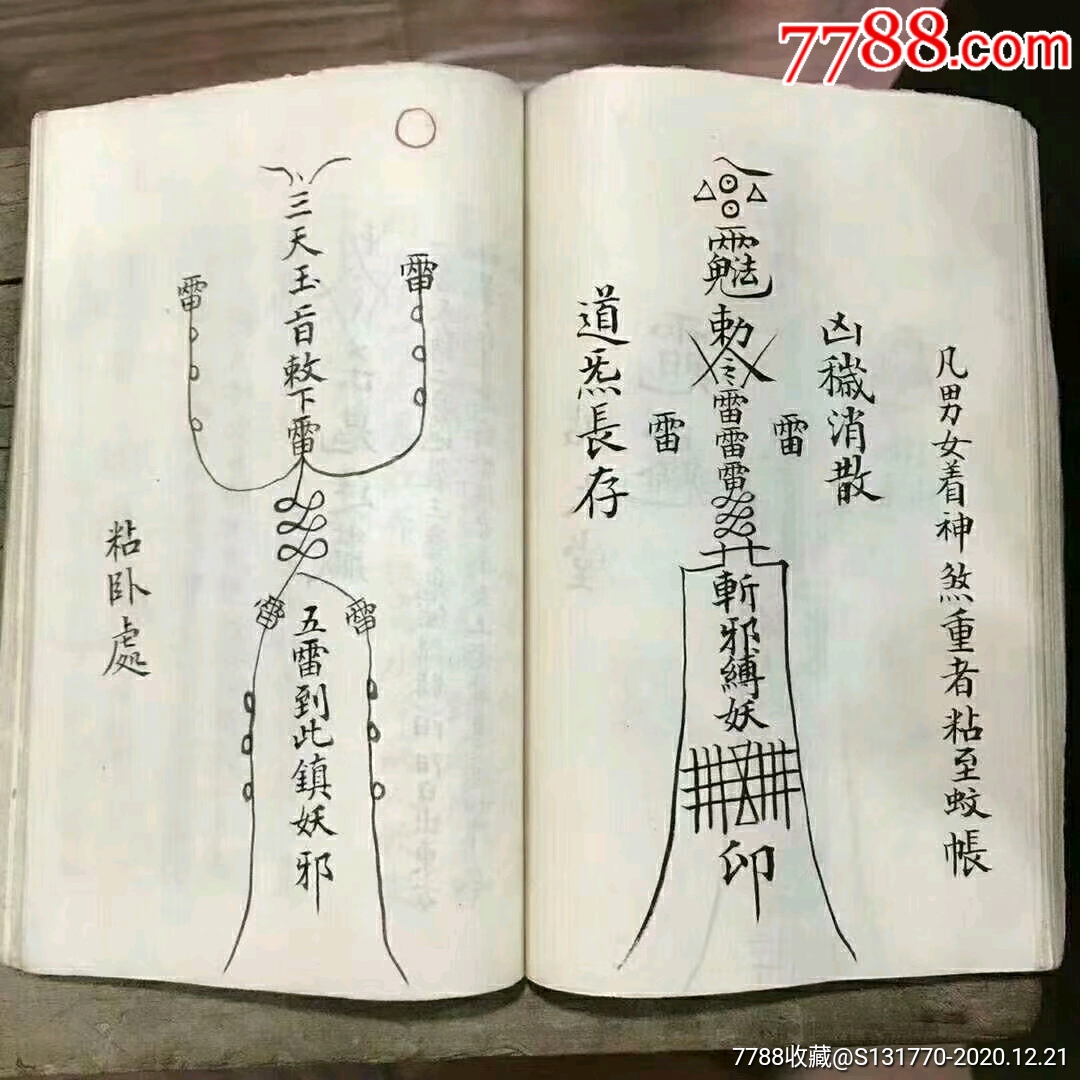 7788.com
凡男女着神煞重者粘至蚊帳
凶穢消散
勅令雷雷雷
雷
雷
斬邪縛妖
印
道炁長存
雷
三天玉音敕下雷
雷
雷
雷
五雷到此鎮妖邪
粘卧處
7788收藏@S131770-2020.12.21